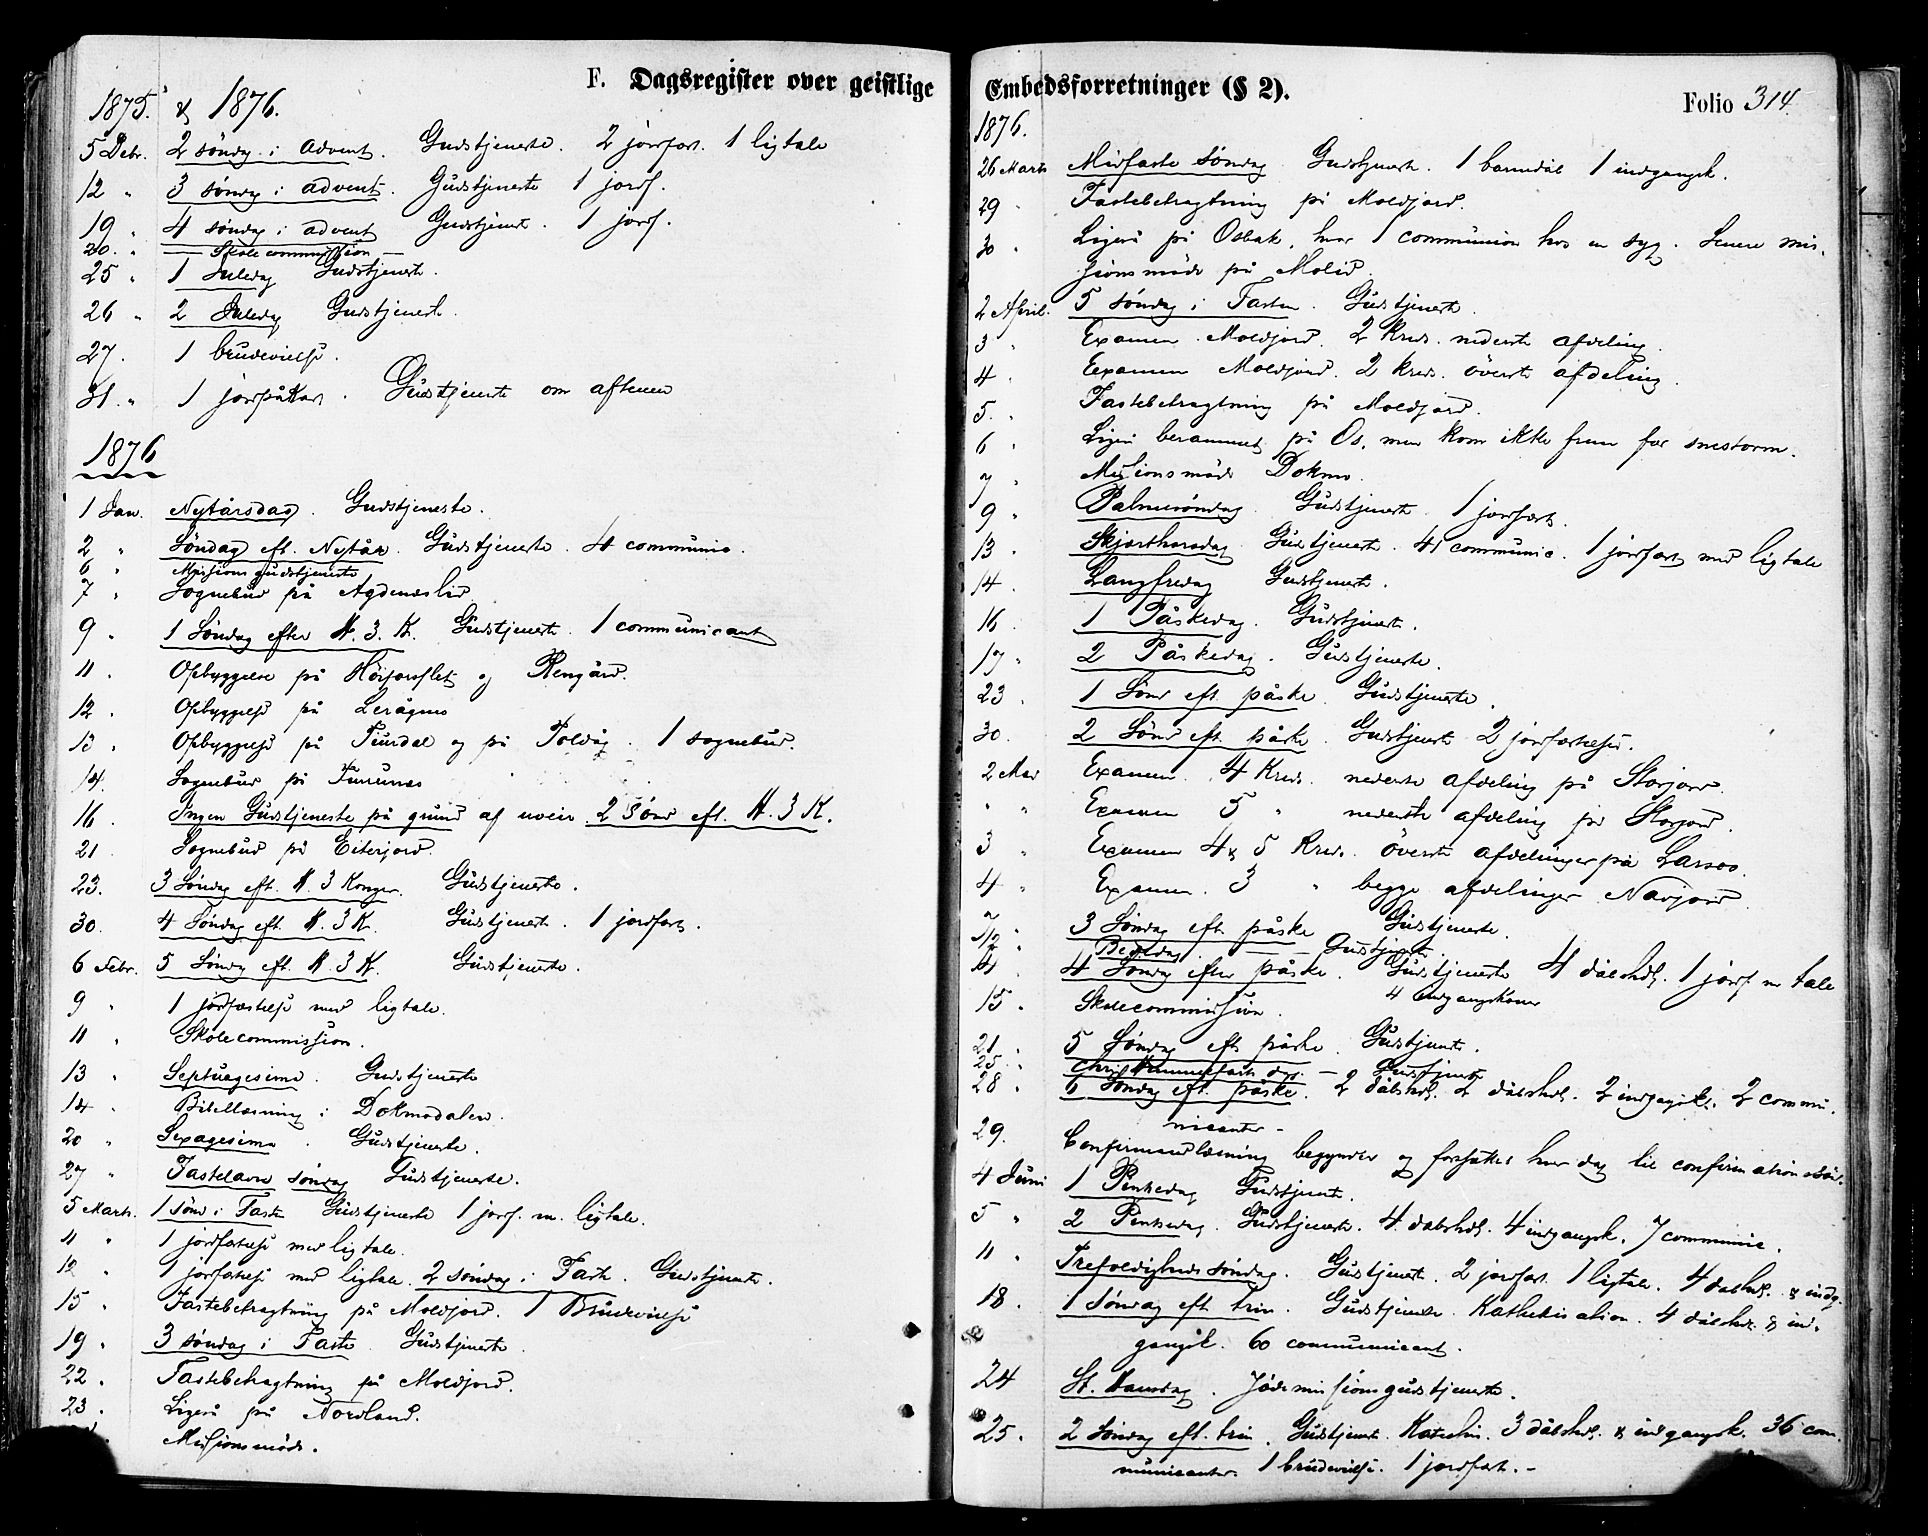 F. Dagsregister over geistlige
1875. & 1876.
5 Debr. 2 söndg. i Advent. Gudstjeneste. 2 jordfart. 1 ligtale
12 " 3 söndg i advent. Gudstjeneste 1 jordf.
19 " 4 söndag i advent Gudstjenest. 1 jordf.
20. " — Skolecommission —
25 " 1 Juledag Gudstjeneste.
26 " 2 Juledag Gudstjeneste.
27. 1 brudevielse.
31. " 1 jordpåkast. Gudstjeneste om aftenen
1876
1 Jan. Nytårsdag. Gudstjeneste.
2 " Söndag eft. Nytår. Gudstjeneste. 4 communic.
6 " Missions gudstjeneste
7 " Sognebud på Agdeneslid.
9 " 1 Söndag efter H. 3. K. Gudstjeneste. 1 communicant
11. Opbyggelse på Höijordflet og Rengård.
12. Opbyggelse på Leirågmo
13 " Opbyggelse på Tuurdal og på Tollåg. 1 sognebud.
14. Sognebud på Furunes
16. Ingen Gudstjeneste på grund af uveir. 2 Sönd eft. H. 3 K.
21. Sognebud på Eiterjord.
23. 3 Söndag eft. H. 3 Konger. Gudstjeneste.
30. 4 Söndag eft. H. 3 K. Gudstjeneste. 1 jordfart.
6 Febr. 5 Söndg eft. H. 3 K. Gudstjeneste.
9 " 1 jordfæstelse med ligtale.
11 " Skolecommission.
13 " Septuagesima. Gudstjeneste
14. Bibellæsning i Dokmodalen.
20 " Sexagesima. Gudstjeneste.
27 " Fastelavns söndag Gudstjeneste.
5 Marts. 1 sönd i Faste Gudstjeneste 1 jordf. m. ligtale.
11 " 1 jordfæstelse med ligtale.
12 " 1 jordfæstelse med ligtale. 2 söndag i Faste. Gudstjeneste.
15 " Fastebetragtning på Moldjord. 1 Brudevielse
19 " 3 söndag i Faste. Gudstjeneste.
22. Fastebetragtning på Moldjord.
23. Ligeså på Nordland.
Missionsmöde.
Embedsforretninger (§ 2).
Folio 314.
1876.
26 Marts Midfaste söndag. Gudstjeneste. 1 barnedåb 1 indgangsk.
29 " Fastebetragtning på Moldjord.
30 " Ligeså på Osbak, hvor 1 communion hos en syg. Senere mis-
sionsmöde på Molid.
2 April. 5 söndag i Fasten. Gudstjeneste.
3 " Examen. Moldjord. 2 Kreds. nederste afdeling.
4 " Examen Moldjord. 2 kreds. överste afdeling.
5. " Fastebetragtning på Moldjord.
6 " Ligeså berammet på Os, men kom ikke frem for snestorm.
7 " Missionsmöde Dokmo.
9 " Palmesöndag. Gudstjeneste. 1 jordfart.
13 " Skjærthorsdag. Gudstjeneste. 41 communic. 1 jordfart med ligtale
14. Langfredag Gudstjeneste.
16. 1 Påskedag. Gudstjeneste.
17 " 2 Påskedag. Gudstjeneste.
23 " 1 Sönd eft. påske. Gudstjeneste.
30. 2 Sönd eft. påske. Gudstjeneste 2 jordfæstelser.
2 Mai Examen. 4 Kreds. nederste afdeling på Storjord.
" " Examen 5 " nederste afdeling på Storjord.
3 " Examen 4 & 5 Kreds. överste afdelinger på Larsos.
4 " Examen. 3 " begge afdelinger Navjord
7 " 3 Söndag eft påske Gudstjeneste.
12 " Bededag. — — Gudstjeneste.
14 4 Söndg efter påske. Gudstjeneste 4 dåbshdl. 1 jordf. m tale
4 indgangskoner
15 " Skolecommission.
21 " 5 Söndag eft. påske. Gudstjeneste.
25. " Chri. Himmelfarts dg. — Gudstjeneste
28 " 6 Söndag eft. påske. 2 dåbshdl. 2 dåbshdl. 2 indgangsk. 2 commu-
nicanter —
29. Confirmandlæsning begynder og fortsættes hver dag til confirmationsdåi
4 Juni 1 Pinsedag Gudstjeneste.
5 " 2 Pinsedag. Gudstjeneste. 4 dåbshdl. 4 indgangsk. 7 communic.
11 " Trefoldigheds söndag. Gudstjeneste. 2 jordfart. 1 ligtale. 4 dåbshdl. & indg.
18. 1 söndag eft. trin. Gudstjeneste. Kathekisation. 4 dåbshdl. & ind-
gangsk. 60 communicant.
24 St. Hansdag. Jödemissionsgudstjeneste.
25. 2 söndag eft. trin. Gudstjeneste. Katechis. 3 dåbshdl. & indgangsk. 36 com-
municanter. 1 brudevielse. 1 jordfart. —